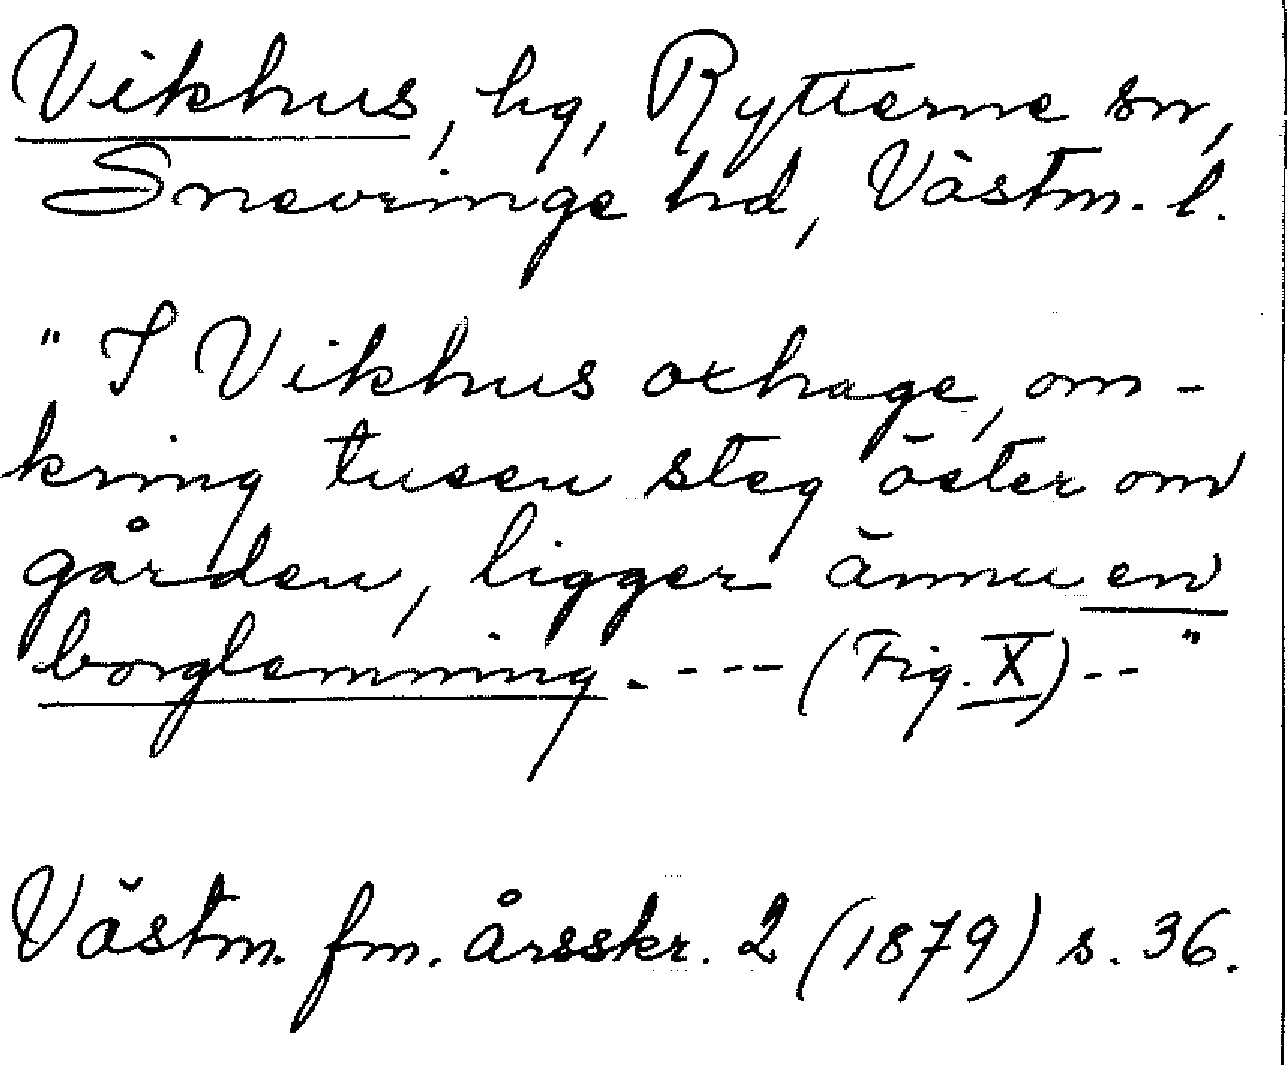 Vikhus, hg, Rytterne sn,
Snevringe hd, Västm. l.
" I Vikhus oxhage, om-
kring tusen steg öster om
gården, ligger ännu en
borglemning. --- (Fig. X) -- "
Västm. fm. årsskr. 2 (1879) s. 36.